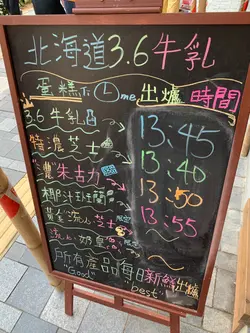 北海道3.6牛乳
蛋糕Time出爐時間
3.6牛乳 13:45
特濃芝士 13:40
"濃"朱古力 13:50
椰汁斑蘭 13:55
黃金流心芝士
流心奶皇
所有產品每日新鮮出爐
"Good" "best"